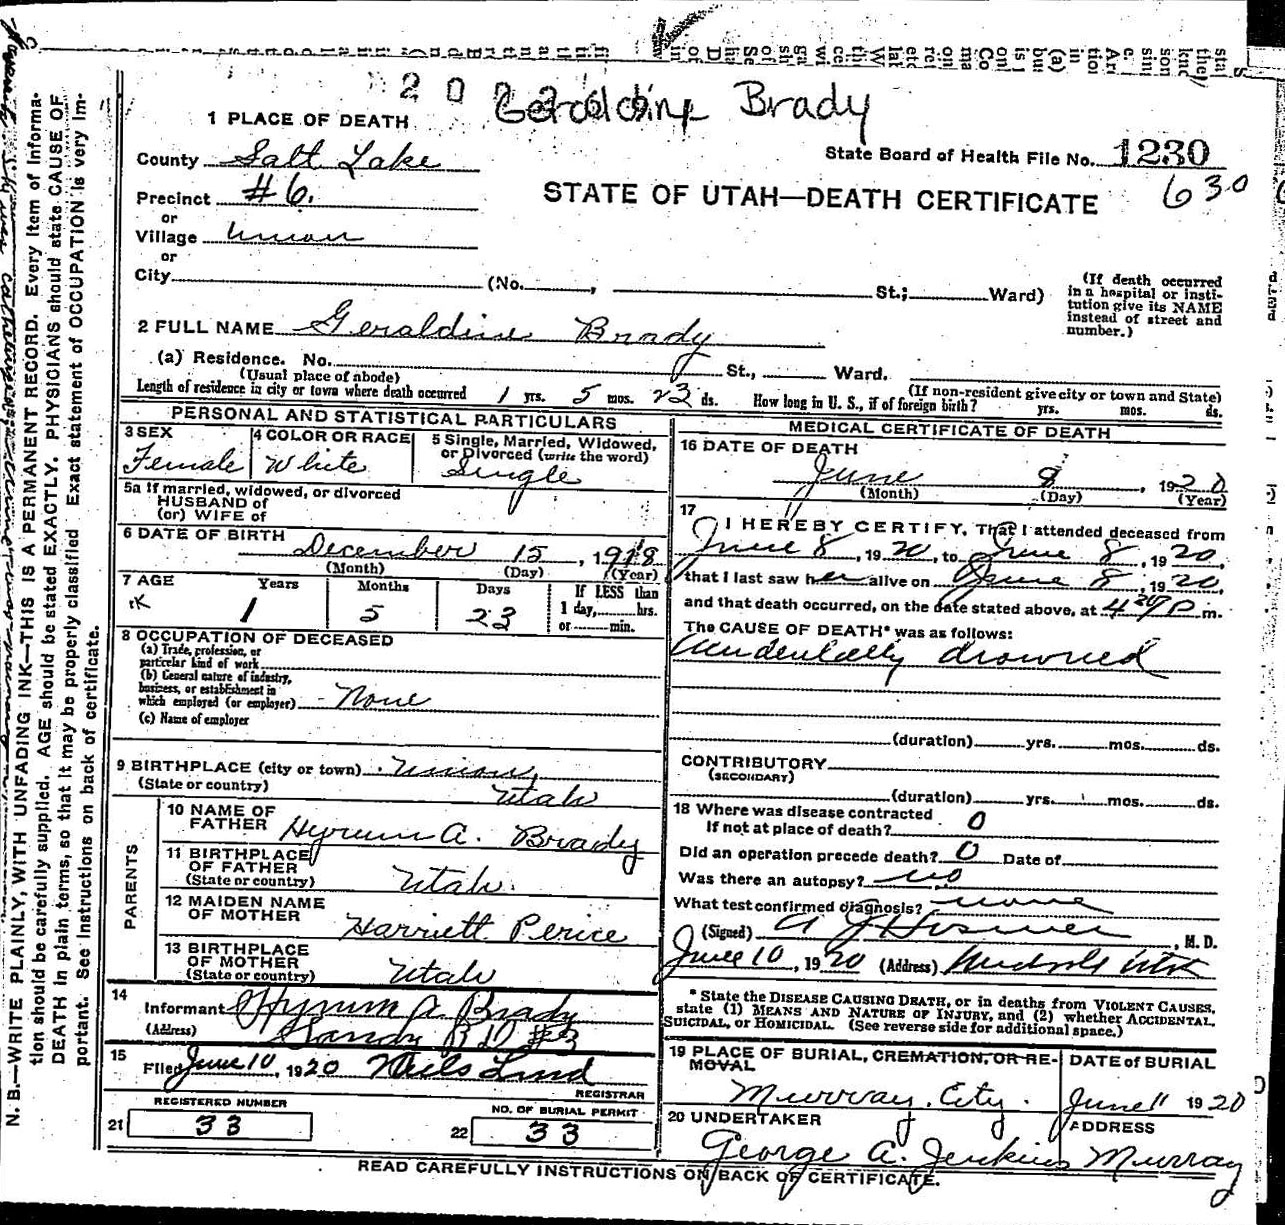 Geraldine Brady
1 PLACE OF DEATH
County Salt Lake
State Board of Health File No. 1230
630
Precinct #6.
STATE OF UTAH—DEATH CERTIFICATE
or
Village Union
or
City (No. , St.; Ward)
(If death occurred in a hospital or insti-
tution give its NAME
instead of street and
number.)
2 FULL NAME Geraldine Brady
(a) Residence. No. St., Ward.
(Usual place of abode)
(If non-resident give city or town and State)
Length of residence in city or town where death occurred 1 yrs. 5 mos. 23 ds. How long in U. S., if of foreign birth? yrs. mos. ds.
PERSONAL AND STATISTICAL PARTICULARS
3 SEX
Female
4 COLOR OR RACE
White
5 Single, Married, Widowed,
or Divorced (write the word)
Single
5a If married, widowed, or divorced
HUSBAND of
(or) WIFE of
6 DATE OF BIRTH
December 15, 1918
(Month) (Day) (Year)
7 AGE Years Months Days If LESS than
1 5 23 1 day, hrs.
or min.
8 OCCUPATION OF DECEASED
(a) Trade, profession, or
particular kind of work
(b) General nature of industry,
business, or establishment in
which employed (or employer) None
(c) Name of employer
9 BIRTHPLACE (city or town) Union,
(State or country) Utah
PARENTS
10 NAME OF
FATHER Hyrum A. Brady
11 BIRTHPLACE
OF FATHER
(State or country) Utah.
12 MAIDEN NAME
OF MOTHER Harriett
13 BIRTHPLACE
OF MOTHER
(State or country) Utah
14
Informant Hyrum A. Brady
(Address) Sandy R D #3
15
Filed June 10, 1920 Niels Lind
REGISTRAR
REGISTERED NUMBER
21 33
NO. OF BURIAL PERMIT
22 33
MEDICAL CERTIFICATE OF DEATH
16 DATE OF DEATH
June 8, 1920
(Month) (Day) (Year)
17
I HEREBY CERTIFY, That I attended deceased from
June 8, 1920, to June 8, 1920,
that I last saw her alive on June 8, 1920,
and that death occurred, on the date stated above, at P m.
The CAUSE OF DEATH* was as follows:
Accidentally drowned
(duration) yrs. mos. ds.
CONTRIBUTORY
(SECONDARY)
(duration) yrs. mos. ds.
18 Where was disease contracted
If not at place of death? 0
Did an operation precede death? 0 Date of
Was there an autopsy? no
What test confirmed diagnosis? none
(Signed) A J Hosmer, M. D.
June 10, 1920 (Address) Midvale Utah
* State the DISEASE CAUSING DEATH, or in deaths from VIOLENT CAUSES,
state (1) MEANS AND NATURE OF INJURY, and (2) whether ACCIDENTAL,
SUICIDAL, or HOMICIDAL. (See reverse side for additional space.)
19 PLACE OF BURIAL, CREMATION, OR RE-
MOVAL
Murray City.
DATE of BURIAL
June 11 1920
20 UNDERTAKER
George A. Jenkins
ADDRESS
Murray
READ CAREFULLY INSTRUCTIONS ON BACK OF CERTIFICATE.
N. B.—WRITE PLAINLY, WITH UNFADING INK—THIS IS A PERMANENT RECORD. Every item of Informa-
tion should be carefully supplied. AGE should be stated EXACTLY. PHYSICIANS should state CAUSE OF
DEATH in plain terms, so that it may be properly classified. Exact statement of OCCUPATION is very Im-
portant. See Instructions on back of certificate.